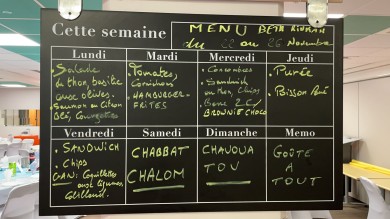 Cette semaine
MENU BETH RIVKAH
du 22 au 26 Novembre
Lundi
Mardi
Mercredi
Jeudi
• Salade
du thon, basilic
aux olives.
Saumon au citron
Blé, Courgettes
• Tomates,
Cornichons
• HAMBURGER-
FRITES
• Concombres
• Sandwich
au thon, Chips
BROWNIE CHOCO
• Purée
• Poisson Pané
Vendredi
Samedi
Dimanche
Memo
• SANDWICH
• Chips
CHABBAT
CHALOM
CHAVOUA
TOV
GOÛTE
A
TOUT